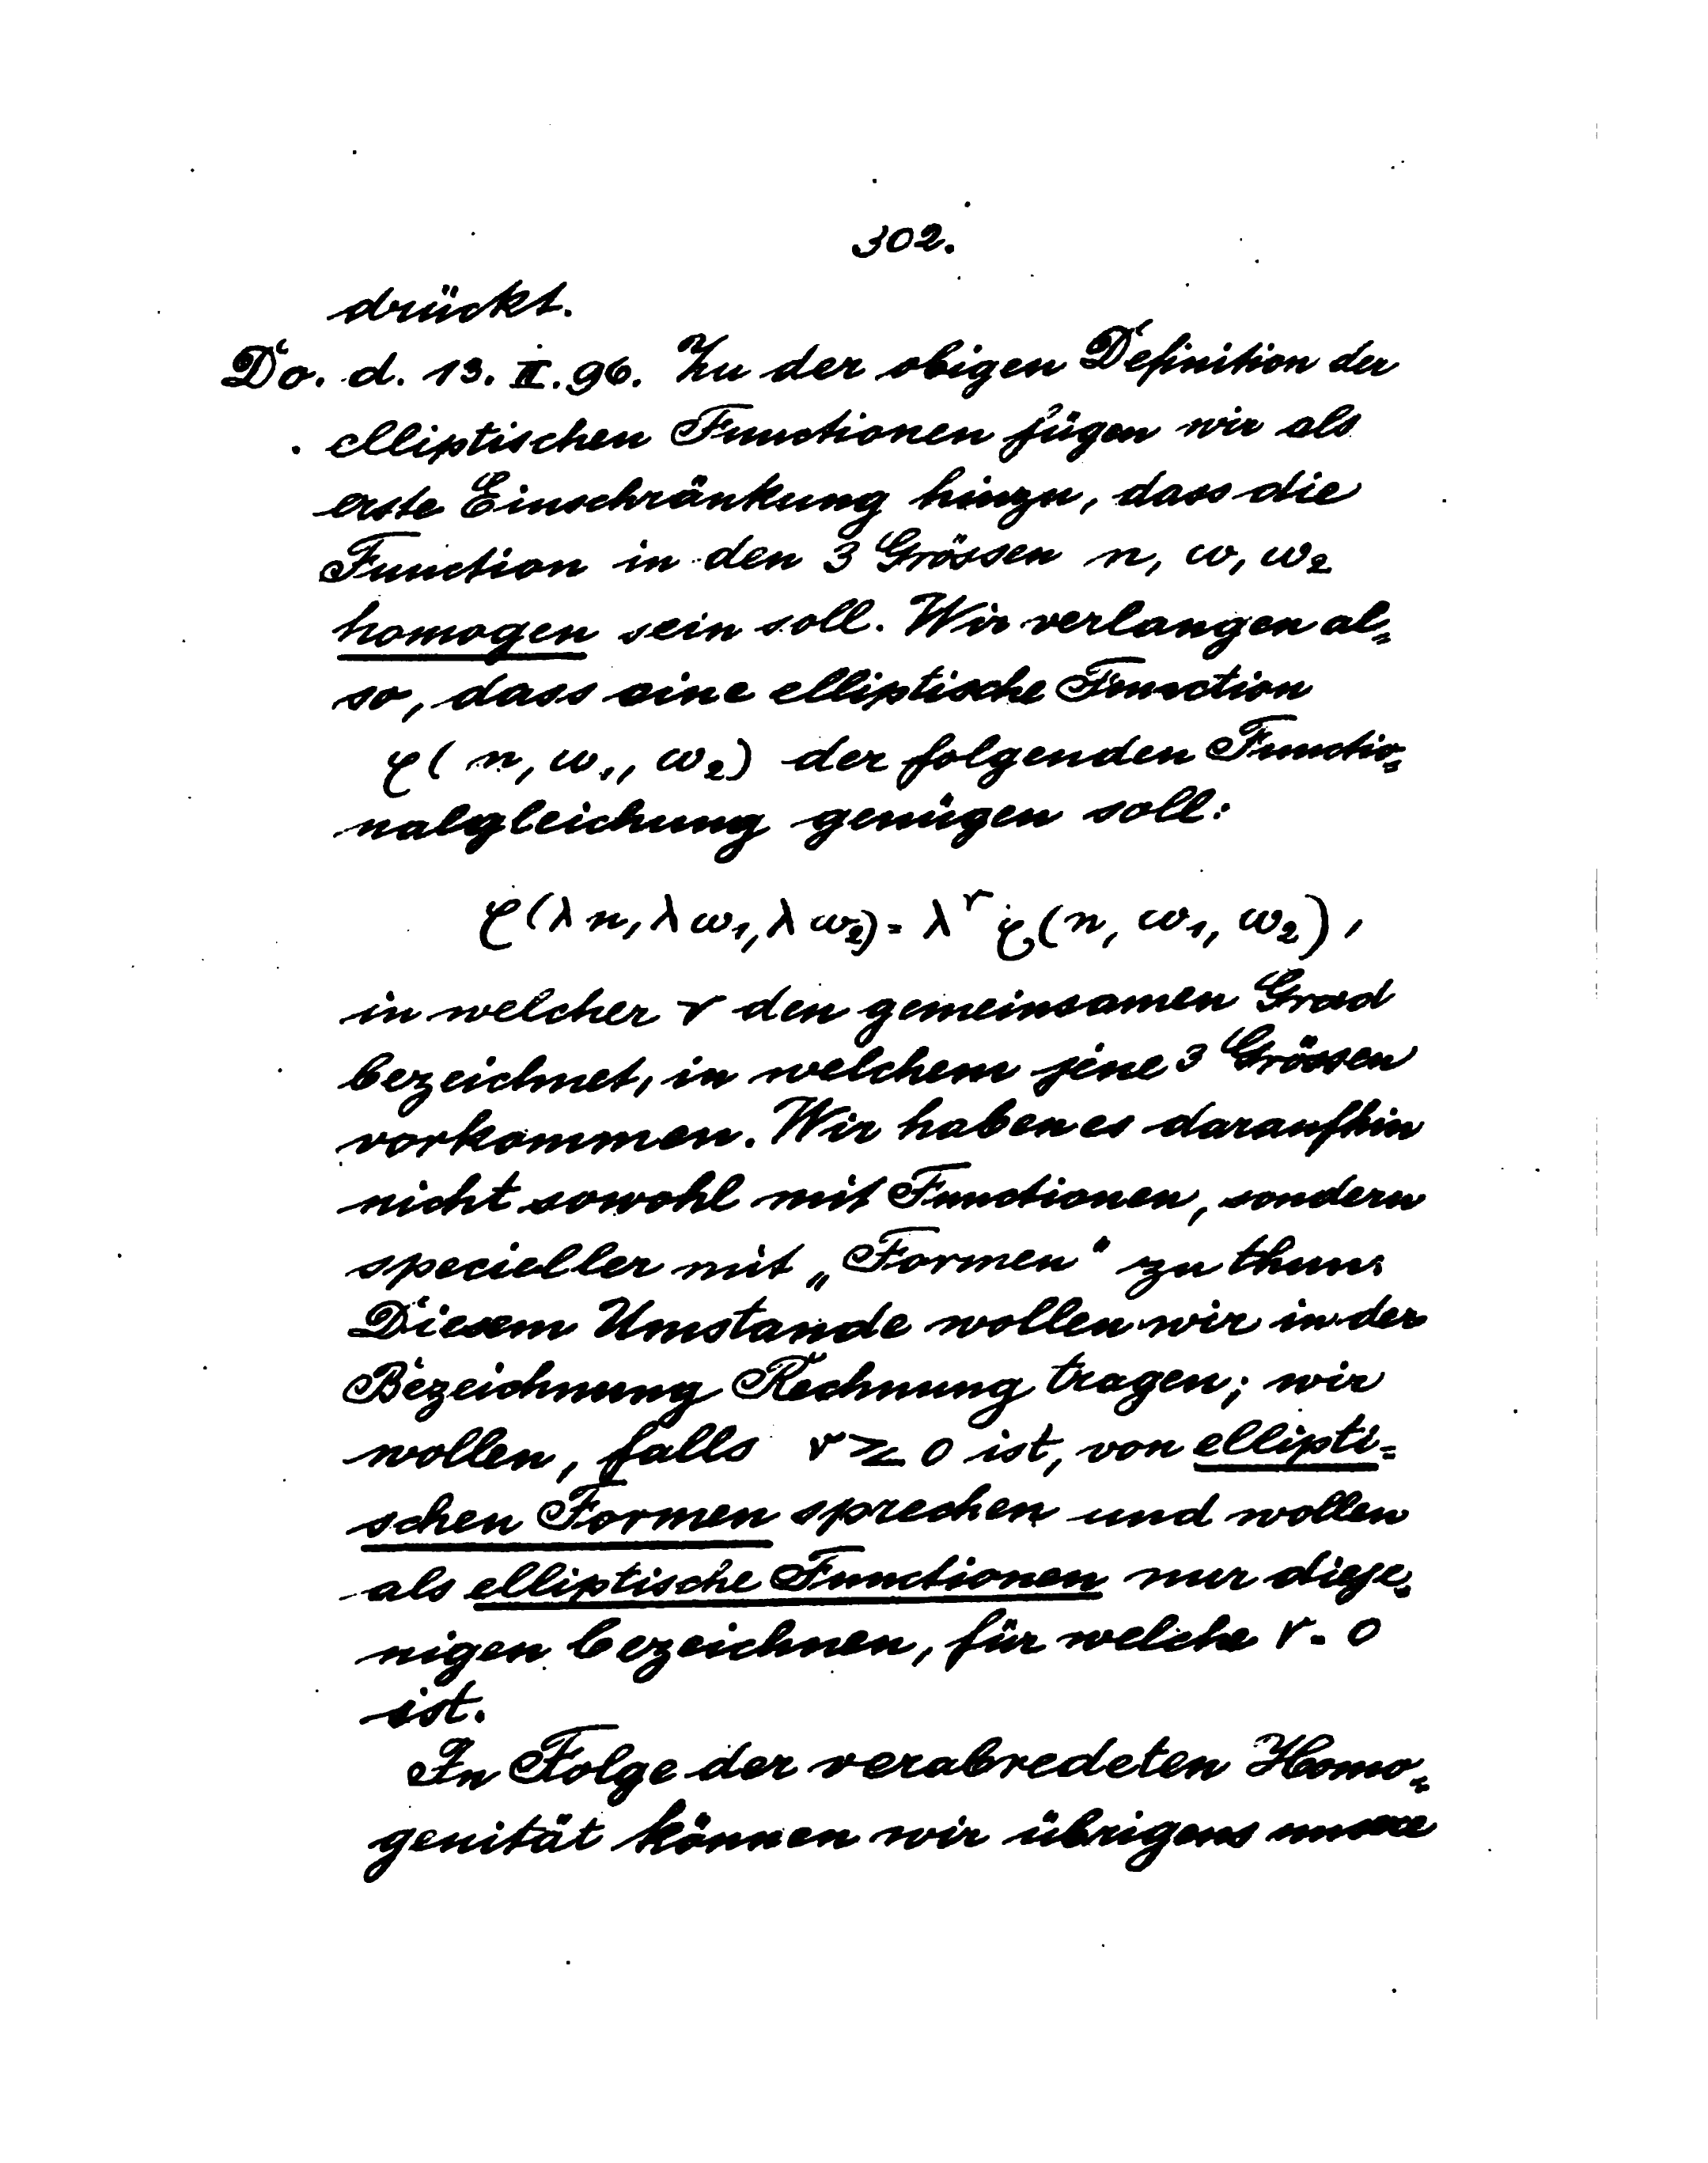 302.
drückt.
Do. d. 13. II. 96. Zu der obigen Definition der
elliptischen Functionen fügen wir als
erste Einschränkung hinzu, dass die
Function in den 3 Grössen u, ω, ω₂
homogen sein soll. Wir verlangen al=
so, dass eine elliptische Function
φ(u, ω₁, ω₂) der folgenden Functio=
nalgleichung genügen soll:
φ(λu, λω₁, λω₂) = λʳ φ(u, ω₁, ω₂),
in welcher r den gemeinsamen Grad
bezeichnet, in welchem jene 3 Grössen
vorkommen. Wir haben es daraufhin
nicht sowohl mit Functionen, sondern
specieller mit „Formen“ zu thun.
Diesem Umstande wollen wir in der
Bezeichnung Rechnung tragen; wir
wollen, falls r ≷ 0 ist, von ellipti=
schen Formen sprechen und wollen
als elliptische Functionen nur dieje=
nigen bezeichnen, für welche r = 0
ist.
In Folge der verabredeten Homo=
genität können wir übrigens unsere